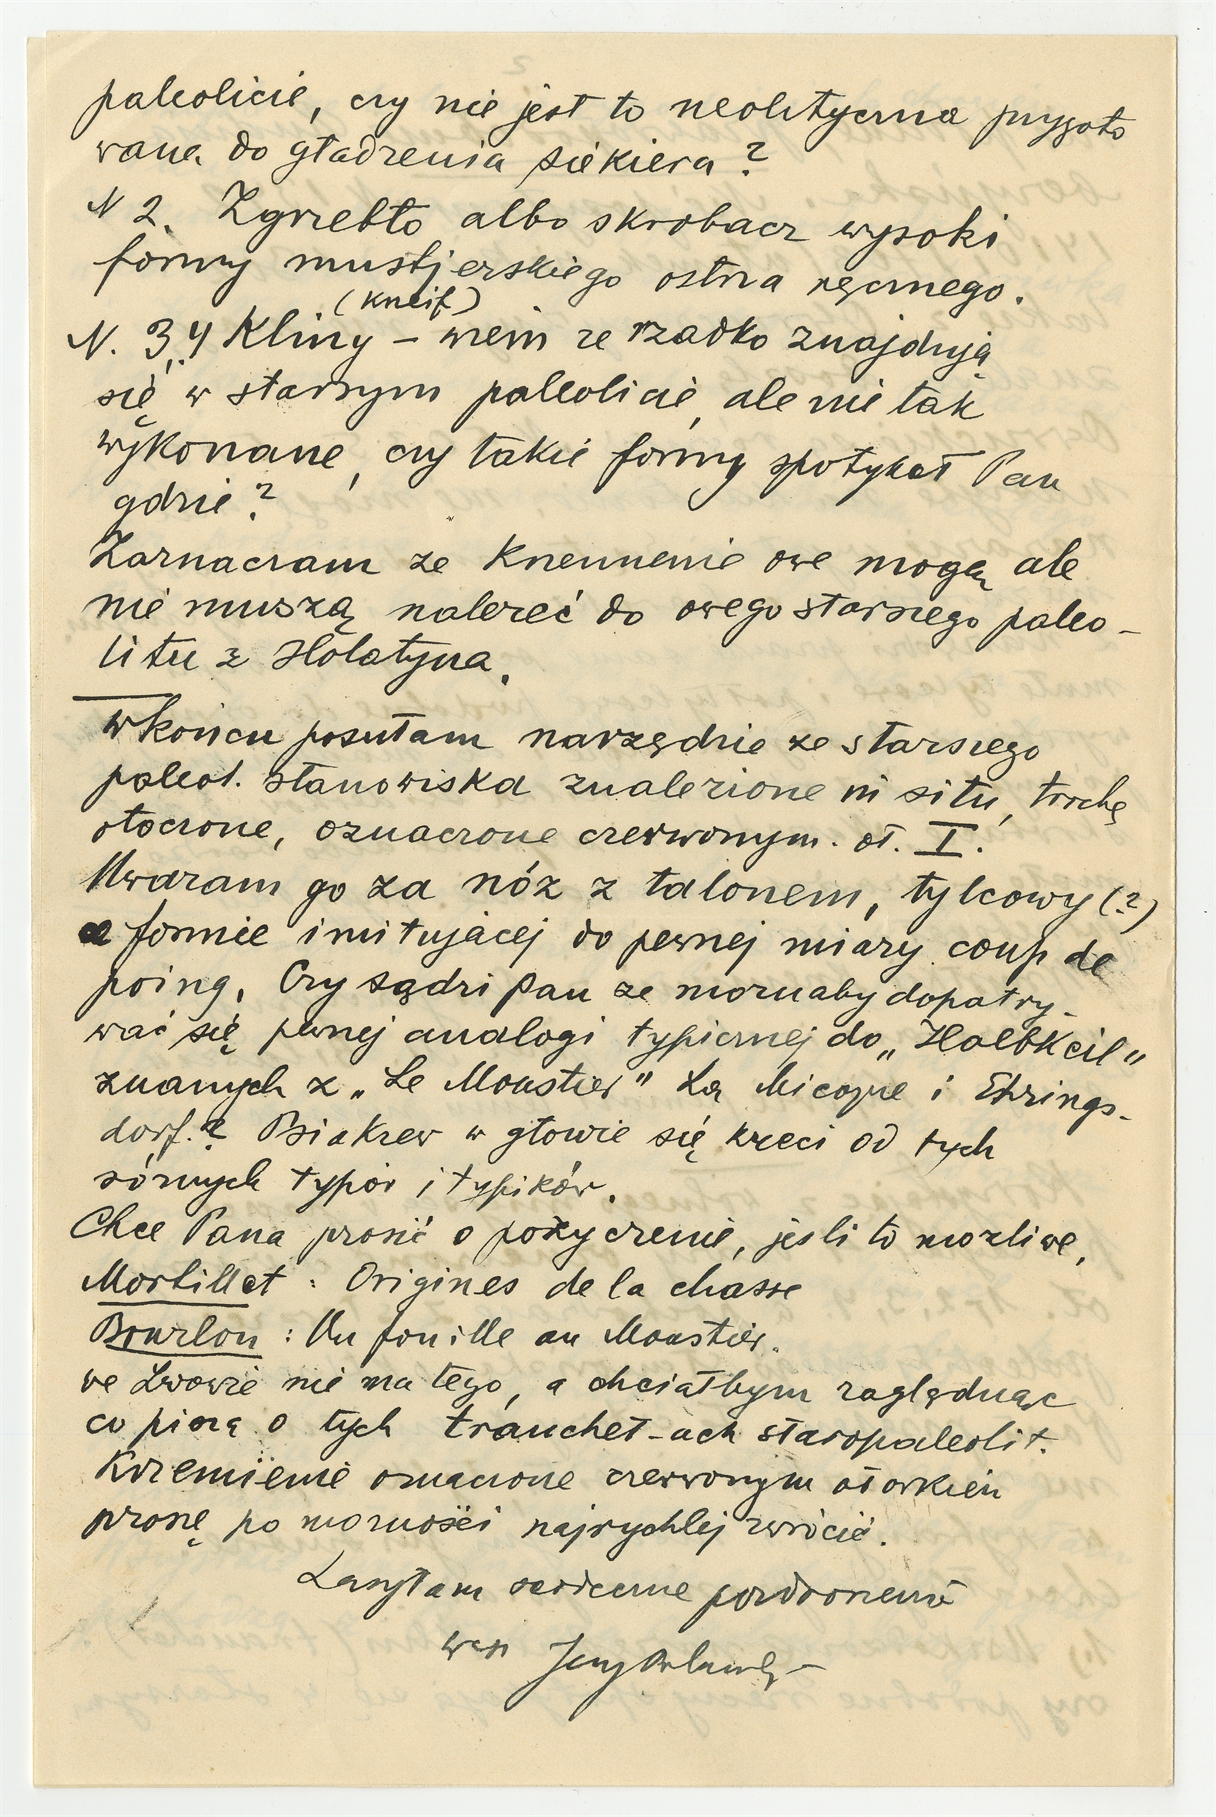 paleolicie, czy nie jest to neolityczna przygoto
wana do gładzenia siekiera?
N 2. Zgrzebło albo skrobacz wysoki
formy mustjerskiego ostrza ręcznego.
(kneif)
N. 3, 4 Kliny – wiem że rzadko znajdują
się w starszym paleolicie, ale nie tak
wykonane, czy takie formy spotykał Pan
gdzie?
Zaznaczam że krzemienie owe mogą ale
nie muszą należeć do owego starszego paleo-
litu z Hołatyna.
W końcu posyłam narzędzie ze starszego
paleol. stanowiska znalezione in situ, trochę
otoczone, oznaczone czerwonym. oł. I.
Uważam go za nóż z talonem, tylcowy (?)
o formie imitującej do pewnej miary coup de
poing. Czy sądzi Pan że możnaby dopatry-
wać się pewnej analogi typicznej do „Halbkeil"
znanych z „Le Moustier" La Micoque i Ehrings-
dorf.? Psiakrew w głowie się kręci od tych
różnych typów i typików.
Chcę Pana prosić o pożyczenie, jeśli to możliwe,
Mortillet : Origines de la chasse
Bourlon : Un fouille au Moustier.
we Lwowie nie ma tego, a chciałbym zaglądnąć
co piszą o tych tranchet-ach staropaleolit.
Krzemienie oznaczone czerwonym ołówkiem
proszę po możności najrychlej zwrócić.
Zasyłam serdeczne pozdrowienia
Jerzy